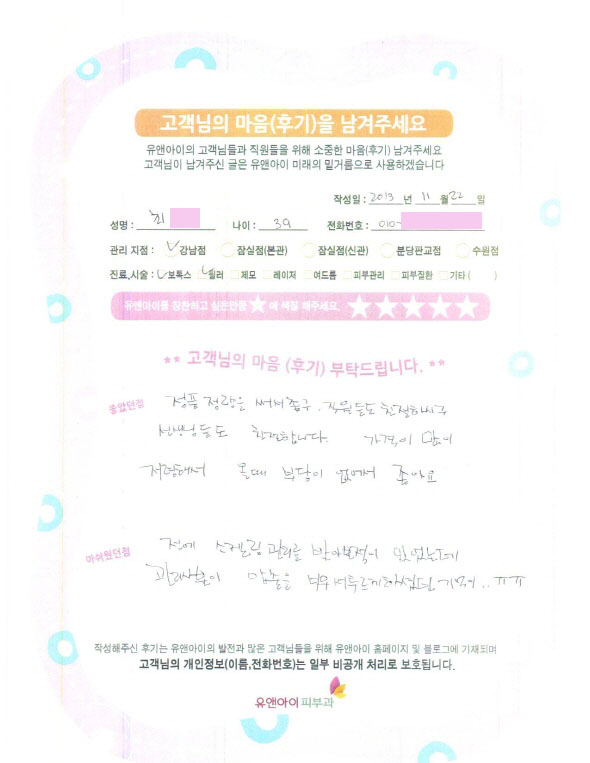 고객님의 마음(후기)을 남겨주세요
유앤아이의 고객님들과 직원들을 위해 소중한 마음(후기) 남겨주세요
고객님이 남겨주신 글은 유앤아이 미래의 밑거름으로 사용하겠습니다
작성일 : 2013 년 11 월 22 일
성명 : 최 나이 : 39 전화번호 : 010-
관리 지점 : 강남점 잠실점(본관) 잠실점(신관) 분당판교점 수원점
진료,시술 : 보톡스 필러 제모 레이저 여드름 피부관리 피부질환 기타 ( )
유앤아이를 칭찬하고 싶은만큼 ★ 에 색칠 해주세요. ★★★★★
** 고객님의 마음 (후기) 부탁드립니다. **
좋았던점 정품 정량을 써서 좋구. 직원들도 친절하시구
선생님들도 친절합니다. 가격이 많이
저렴해서 올때 부담이 없어서 좋아요
아쉬웠던점 전에 스켈링 관리를 받아본적이 있었는데
압출을 너무 기억이.. ㅠㅠ
작성해주신 후기는 유앤아이의 발전과 많은 고객님들을 위해 유앤아이 홈페이지 및 블로그에 기재되며
고객님의 개인정보(이름,전화번호)는 일부 비공개 처리로 보호됩니다.
유앤아이 피부과